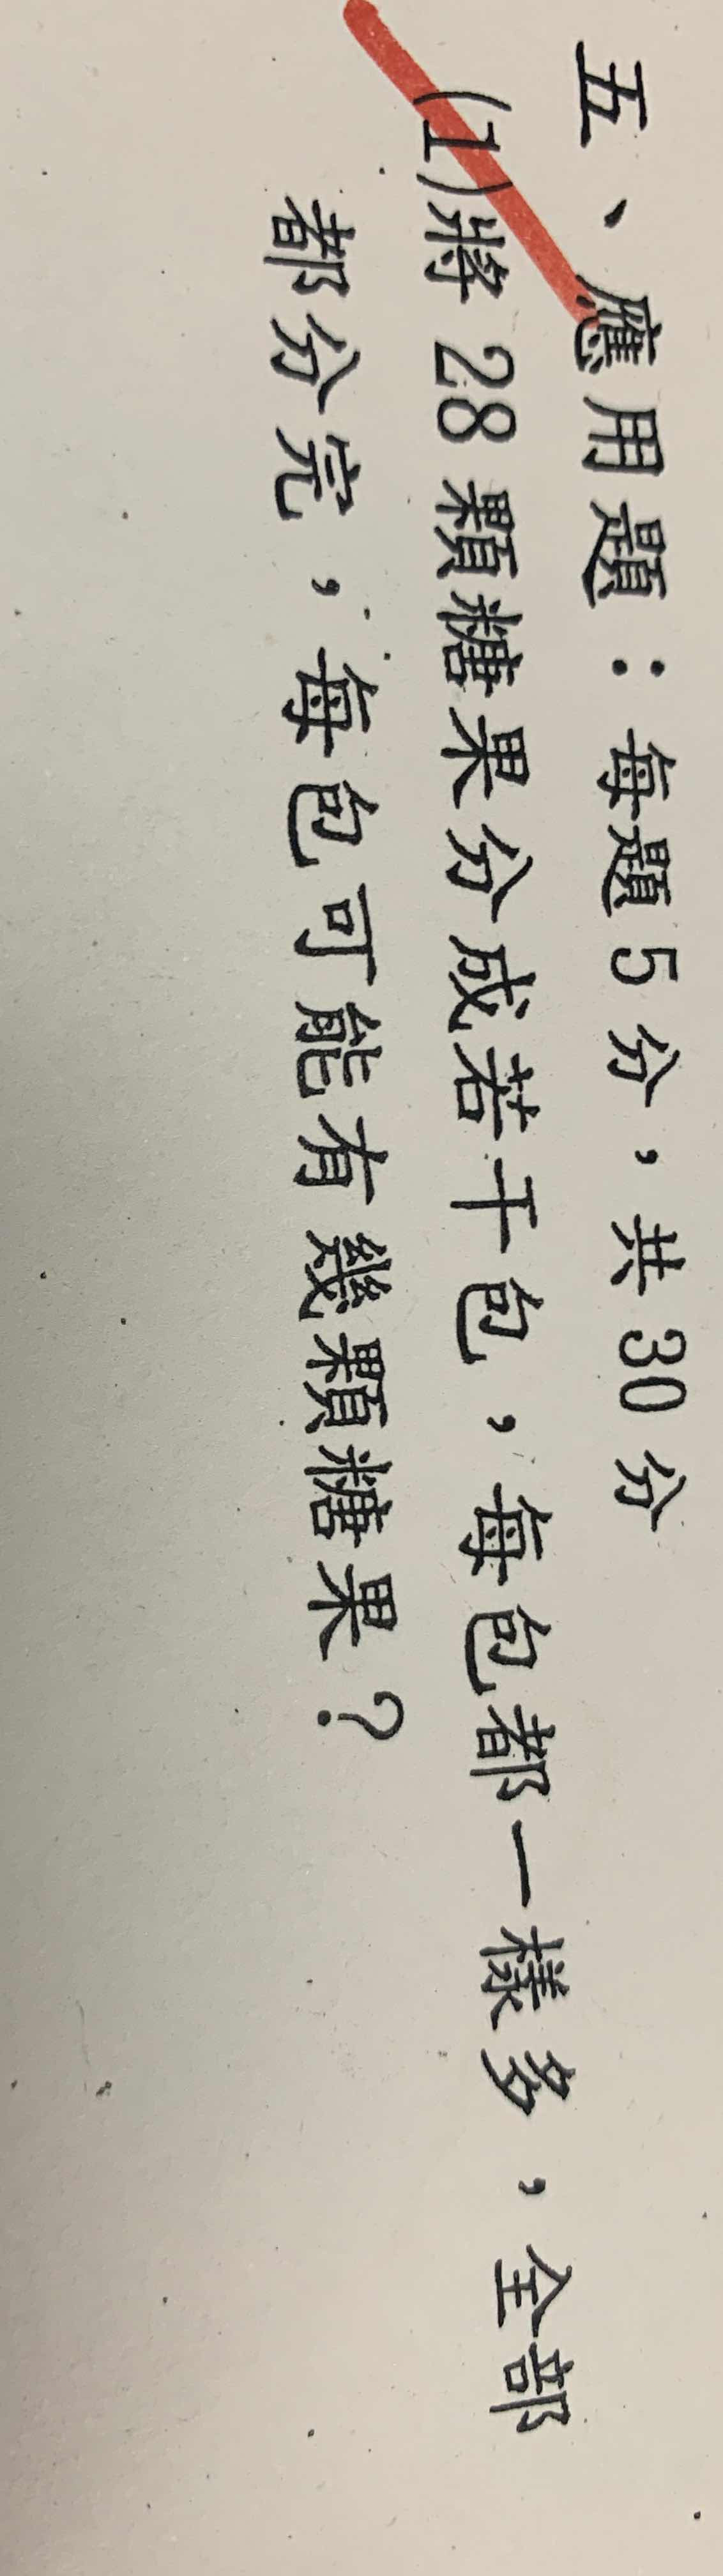 五、應用題：每題5分，共30分
(1)將28顆糖果分成若干包，每包都一樣多，全部
都分完，每包可能有幾顆糖果？